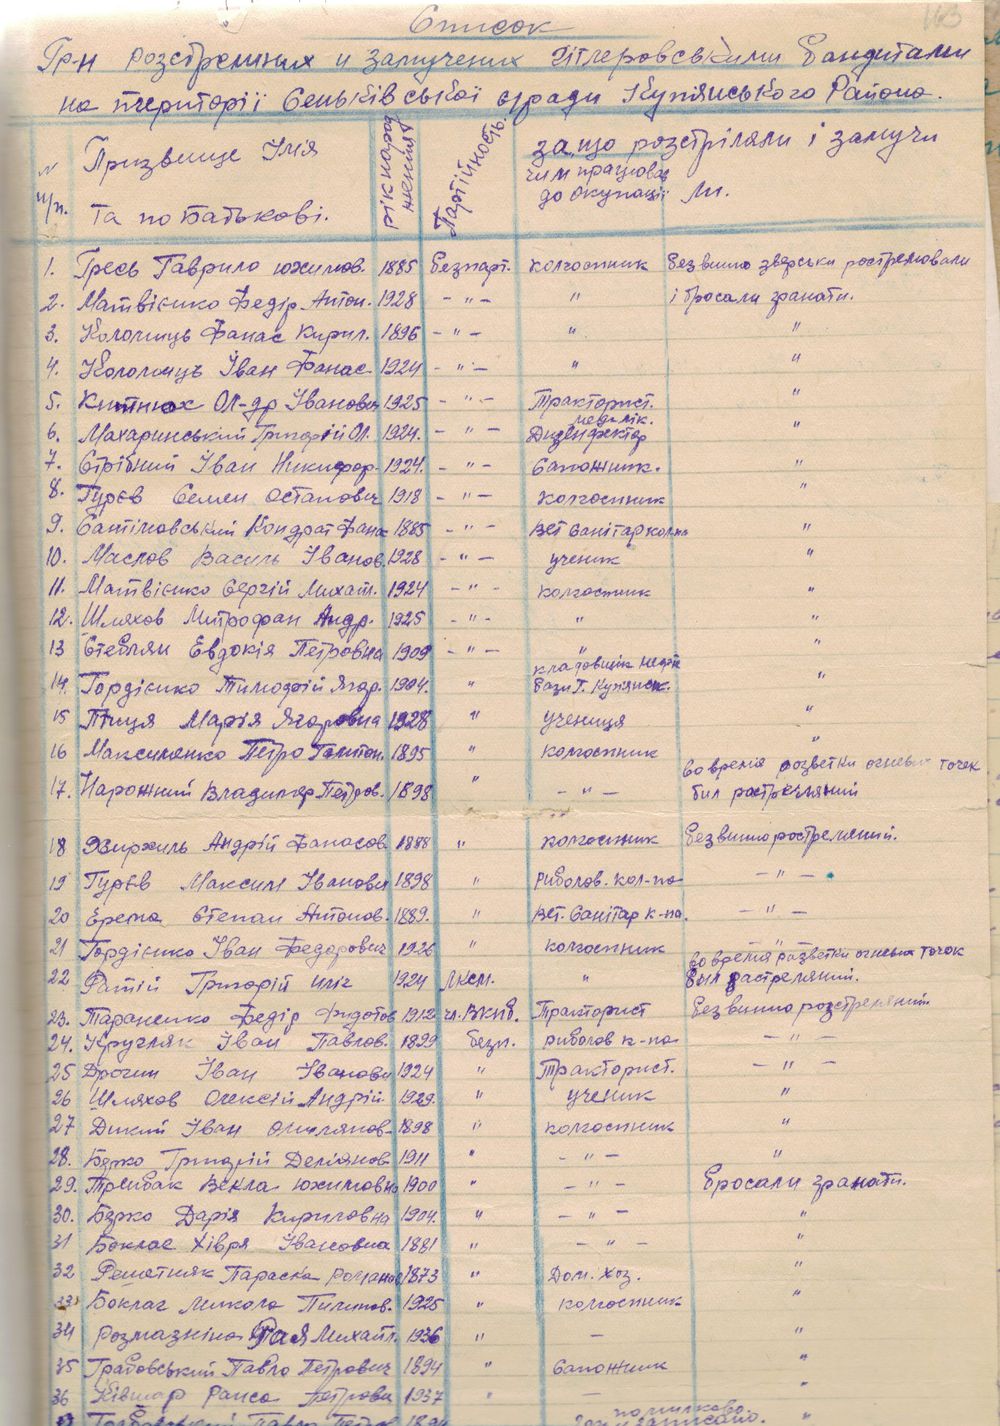 163
Список
Гр-н розстреляних и замучених Гітлеровськими бандитами
на території Сеньківської сради Купянського Района.
н/п.
Призвище Імя
та по батькові.
рік народження
Партійность.
чим працював до окупації
за що розстріляли і замучили.
1. Гресь Гаврило Юхимов. 1885 безпарт. колгоспник без винно зверськи ростремовали
2. Матвієнко Федір Антон. 1928 - " - " і бросали гранати.
3. Коломиць Фанас Кирил. 1896 - " - " "
4. Коломиць Іван Фанас. 1924 - " - " "
5. Ол-др Іванович 1925 - " - Тракторист. "
6. Махаринський Григорій Ол. 1924. - " - Дизенфектор медик. "
7. Стрібний Іван Никифор. 1924. - " - Сапожник. "
8. Гурєв Семен Остапович 1918 - " - колгоспник "
9. Кондрат Фана 1885 - " - Вет Санітар кол-па "
10. Маслов Василь Іванов. 1928 - " - ученик "
11. Матвієнко Сергій Михайл. 1924 - " - колгоспник "
12. Шляхов Митрофан Андр. 1925 - " - " "
13 Стеблян Евдокія Петровна 1909 - " - " "
14. Гордієнко Тимофій Ягор. 1904. " кладовщик нефте бази Г. Купянск. "
15 Птиця Марія Ягоровна 1928 " учениця "
16 Максименко Петро 1895 " колгоспник "
17. Нарожний Владимір Петров. 1898 " - " - во время розветки огневих точек бил растреляний
18 Андрій Фанасов. 1888 " колгоспник без винно ростреляний.
19 Гурєв Максим Іванови 1898 " риболов. кол-па - " -
20 Ерема Степан Антонов. 1889. " Вет. Санітар к-па. - " -
21 Гордієнко Іван Федорович 1926 " колгоспник "
22 Григорій Ілліч 1924 ЛКСМ. " во время разветки огневих точок был растреляний.
23. Тараненко Федір Федотов 1912 чл. ВКпб. Тракторист без винно розстреляний
24. Кругляк Іван Павлов. 1899 безп. риболов к-па - " -
25 Дрогин Іван Іванови 1924 " Тракторист. - " -
26 Шляхов Олексій Андрій 1929. " ученик "
27 Дикий Іван Омилянов. 1898 " колгоспник "
28. Берко Григорій Демянов 1911 " - " - "
29. Векла Юхимовна 1900 " - " - бросали гранати.
30. Берко Дарія Кириловна 1904. " - " - "
31 Боклаг Хівря Івановна 1881 " - " - "
32 Решетняк Параска Романов 1873 " Дом. Хоз. "
33 Боклаг Микола Пилипов. 1925 " колгоспник "
34 Розмазніна Рая Михайл. 1936 " - "
35 Грабовський Павло Петрович 1894 " Сапожник "
36 Раиса Петрови 1937 " - "
Павло Петров 1894 помилково записано. "